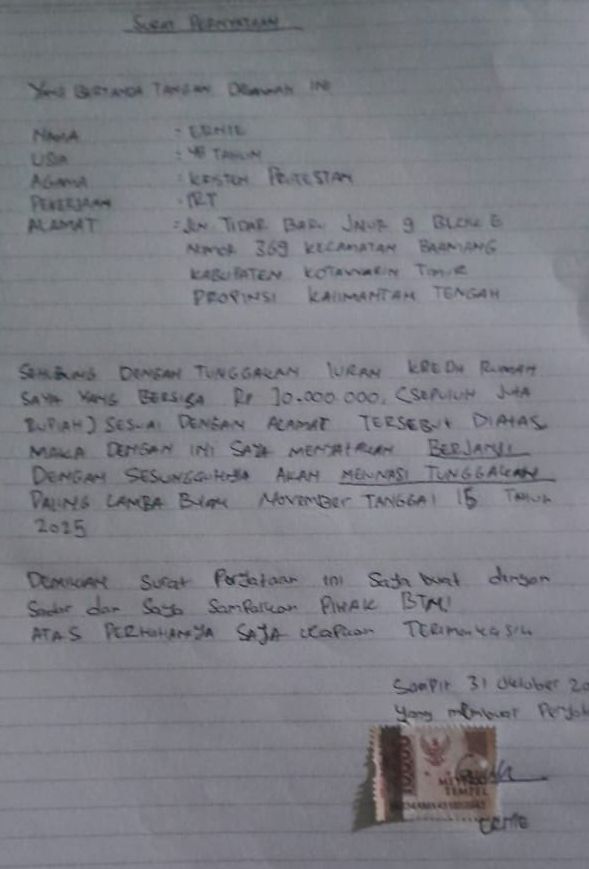 SURAT PERNYATAAN
YANG BERTANDA TANGAN DIBAWAH INI
NAMA : ERNIE
USIA : 48 TAHUN
AGAMA : KRISTEN PROTESTAN
PEKERJAAN : IRT
ALAMAT : JLN TIDAR BARU JALUR 9 BLOK E
NOMOR 369 KECAMATAN BAAMANG
KABUPATEN KOTAWARIN TIMUR
PROPINSI KALIMANTAN TENGAH
DENGAN TUNGGAKAN IURAN KREDIT RUMAH
SAYA YANG BERSISA Rp 10.000.000, (SEPULUH JUTA
RUPIAH) SESUAI DENGAN ALAMAT TERSEBUT DIATAS
MAKA DENGAN INI SAYA MENYATAKAN BERJANJI
DENGAN SESUNGGUHNYA AKAN MELUNASI TUNGGAKAN
PALING LAMBA BULAN NOVEMBER TANGGAL 15 TAHUN
2025
DEMIKIAN Surat Perjataan ini Saya buat dengan
Sadar dan Saya Sampaikan PIHAK BTN
ATAS PERHATIANNYA SAYA UCAPKAN TERIMAKASIH
Sampit 31 Oktober 20
Yang membuat
10000
METERAI
TEMPEL